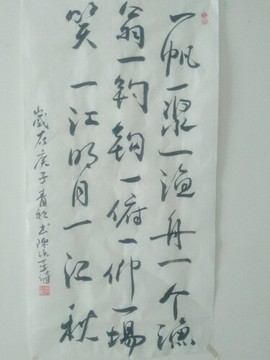 一帆一桨一渔舟一个渔
翁一钓钩一俯一仰一場
笑一江明月一江秋
歲在庚子书